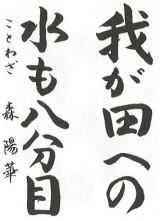 我が田への
水も八分目
ことわざ
森陽華